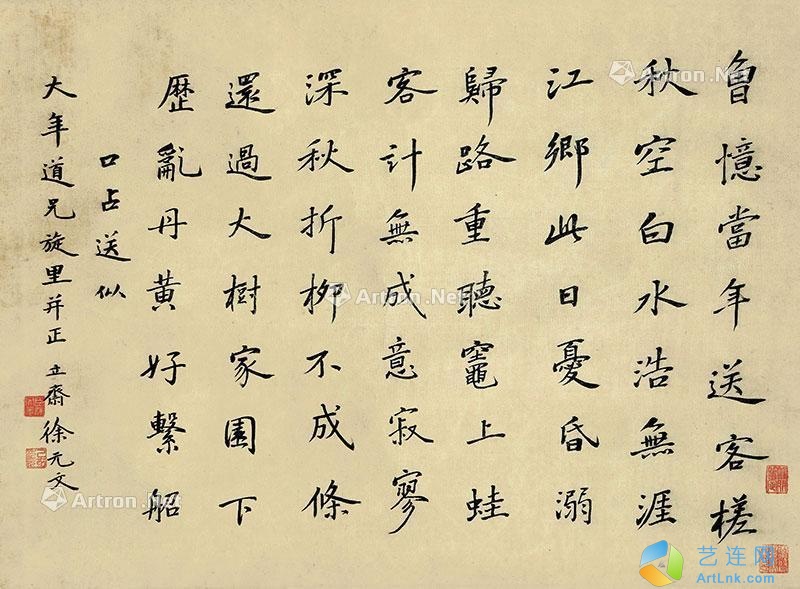 曾憶當年送客槎
秋空白水浩無涯
江鄉此日憂昏溺
歸路重聽竈上蛙
客計無成意寂寥
深秋折柳不成條
還過大樹家園下
歷亂丹黃好繫船
口占送似
大年道兄旋里并正 立齋徐元文
Artron.Net
Artron.Net
Artron.Net
Artron.Net
艺连网
ArtLnk.com